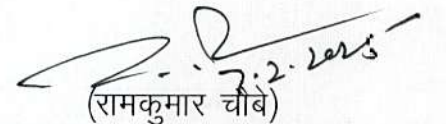 7.2.2025
(रामकुमार चौबे)